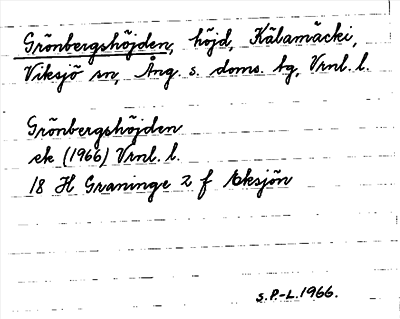 Grönbergshöjden, höjd, Kälamäcki,
Viksjö sn, Ång. s. doms. tg, Vrnl. l.
Grönbergshöjden
ek (1966) Vrnl. l.
18 H Graninge 2 f Eksjön
s.P.-L.1966.